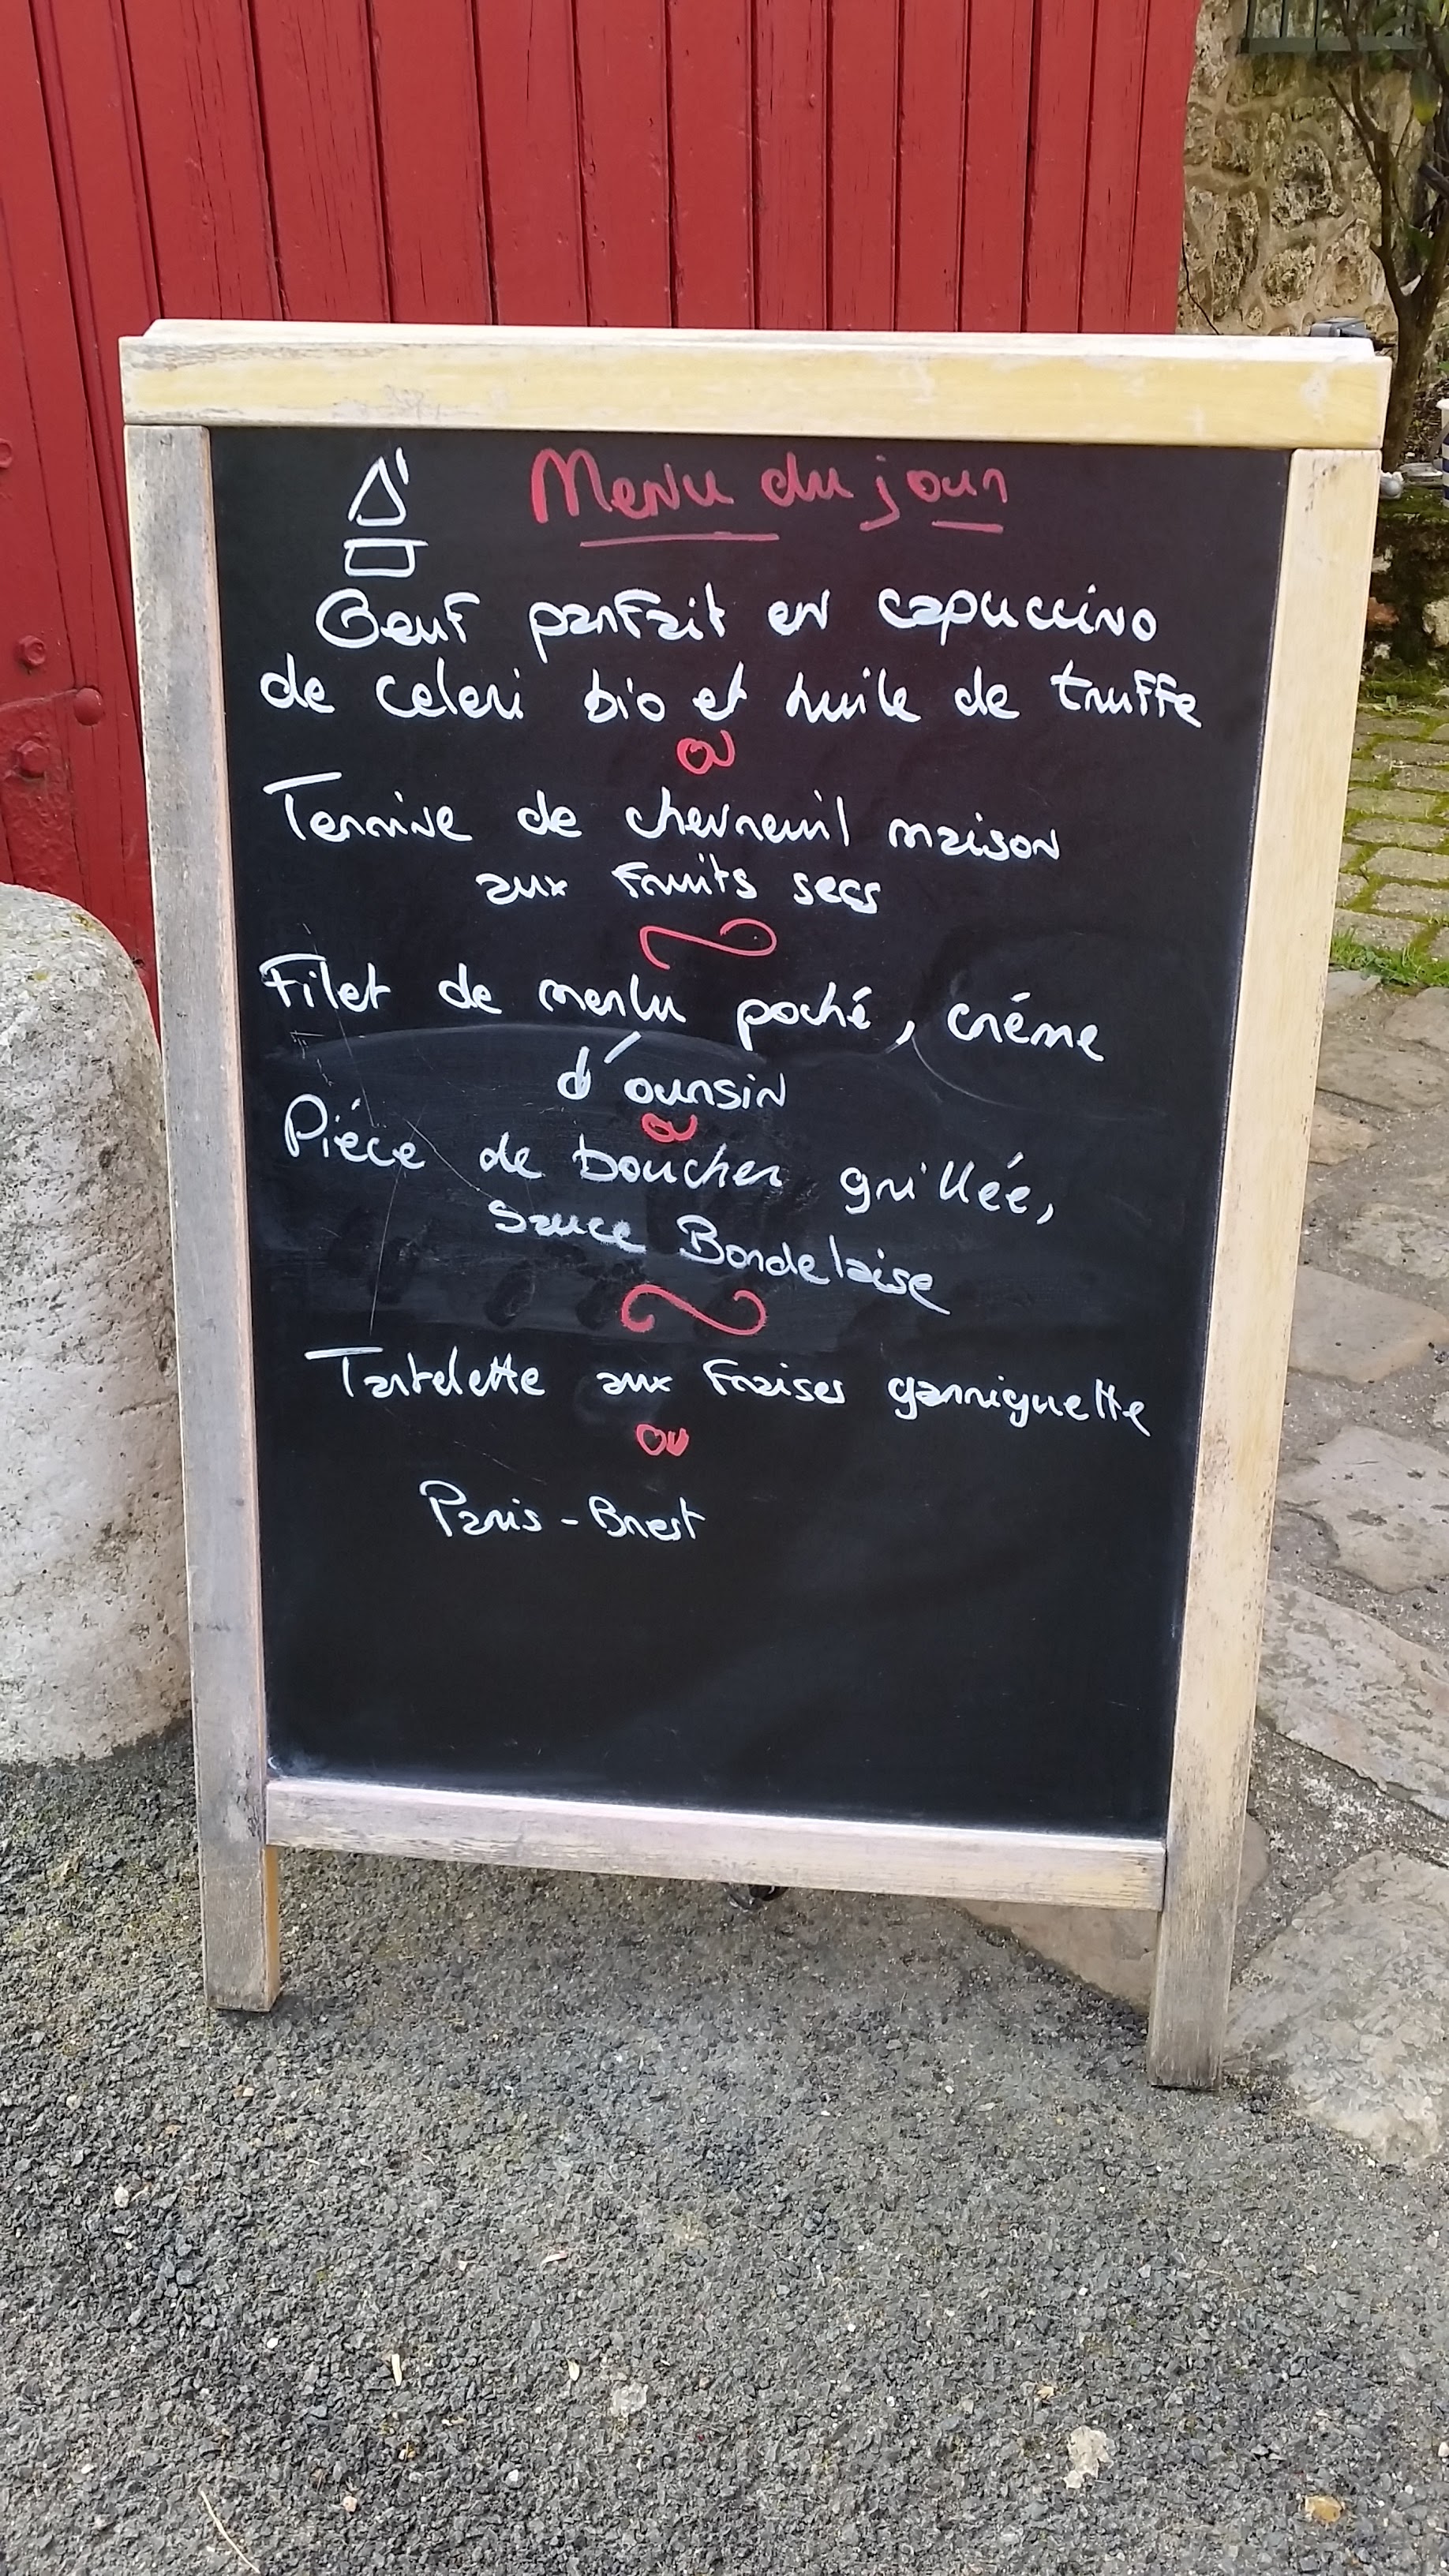 Menu du jour
Oeuf parfait en capuccino
de celeri bio et huile de truffe
ou
Terrine de chevreuil maison
aux fruits secs
Filet de merlu poché, créme
d'oursin
ou
Piéce de boucher grillée,
sauce Bordelaise
Tartelette aux fraises garriguette
ou
Paris-Brest